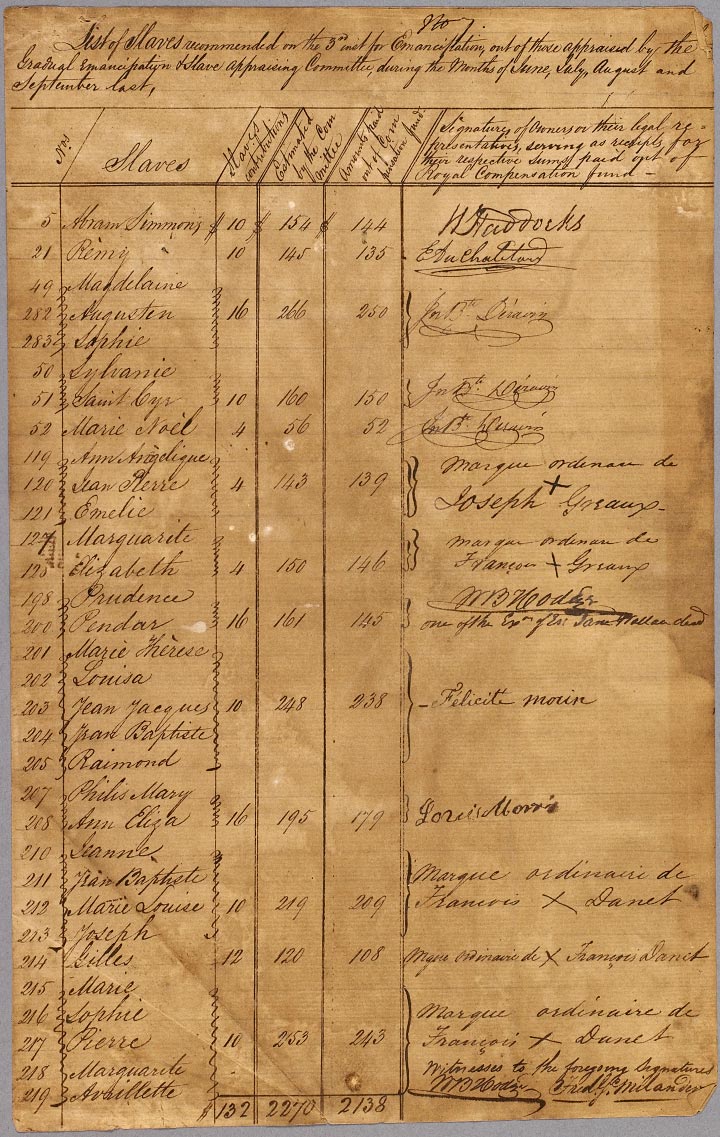 No 1.
List of Slaves recommended on the 3rd inst for Emancipation, out of those appraised by the
Gradual Emancipation & Slave Appraising Committee, during the Months of June, July, August and
September last,
Nos. Slaves Slaves contributions Estimated by the Committee Amounts paid out of Compensation fund. Signatures of Owners or their legal representatives, serving as receipts for their respective Sums paid out of Royal Compensation fund —
5 Abram Simmons $ 10 $ 154 $ 144 H Haddocks
21 Rémy 10 145 135
49 Magdelaine
282 Augusten 16 266 250 Jn Bte Dérávin
283 Sophie
50 Sylvanie
51 Saint Cyr 10 160 150 Jn Bte Dérávin
52 Marie Noël 4 56 52 Jn Bte Dérávin
119 Ann Angélique
120 Jean Pierre 4 143 139 Marque ordenare de
121 Emelie Joseph + Greaux -
127 Marguarite marque ordenare de
128 Elizabeth 4 150 146 François + Greaux
198 Prudence WB Hodge
200 Pendar 16 161 145 one of the Exrs of Es: Jane dec
201 Marie Thérèse
202 Louisa
203 Jean Jacques 10 248 238 - Félicité morin
204 Jean Baptiste
205 Raimond
207 Philis Mary
208 Ann Eliza 16 195 179 Louis Morris
210 Jeanne
211 Jean Baptiste Marque ordinaire de
212 Marie Louise 10 219 209 François X Danet
213 Joseph
214 Gilles 12 120 108 Mque ordinaire de X François Danet
215 Marie
216 Sophie Marque ordinaire de
217 Pierre 10 253 243 François X Danet
218 Marguarite - Witnesses to the foregoing Signatures
219 Availlette WB Hodge Fredk Milander
$ 132 2270 2138